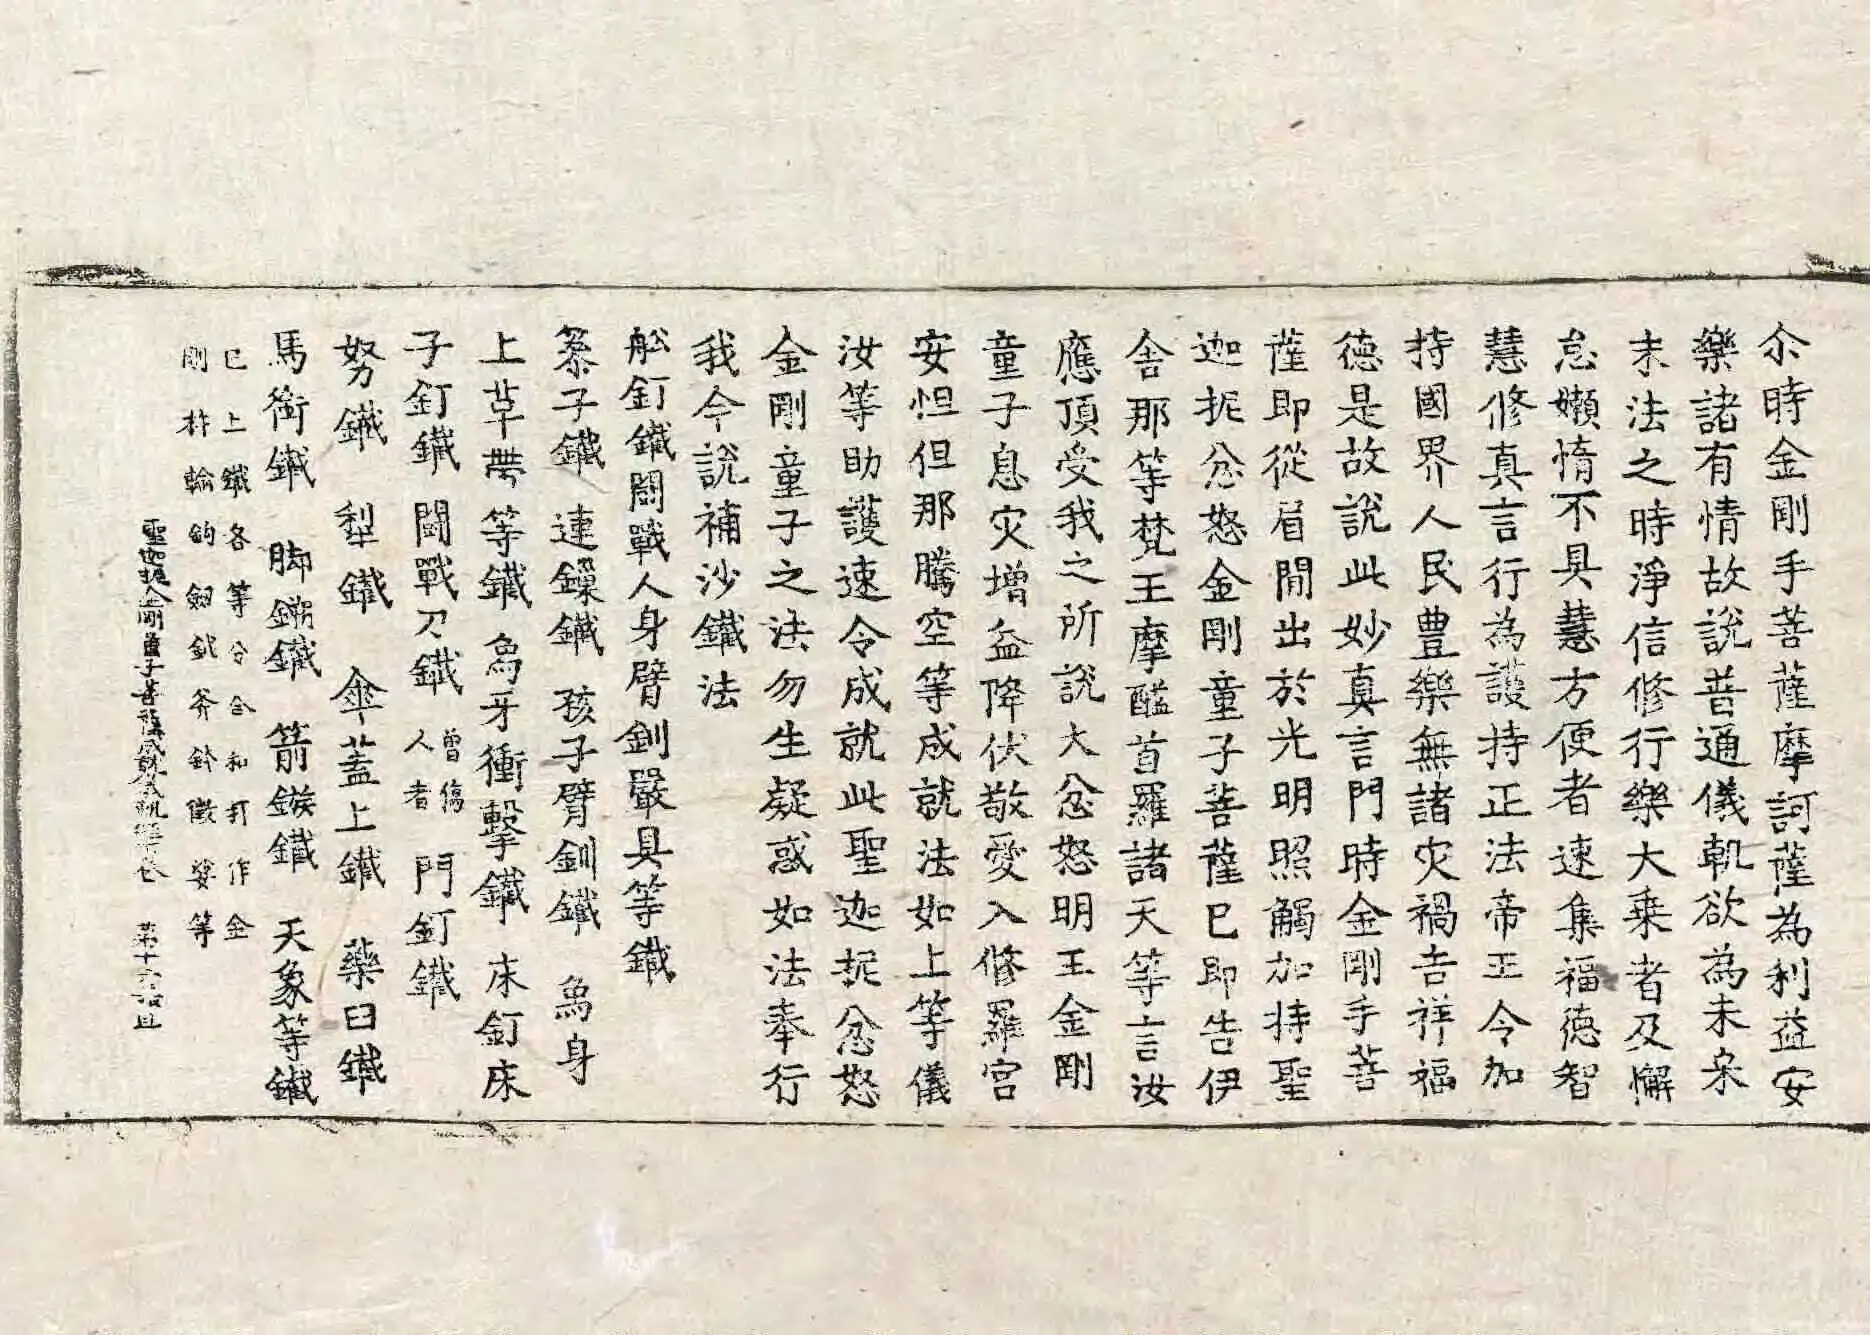 尒時金剛手菩薩摩訶薩為利益安
樂諸有情故説普通儀軌欲為未來
末法之時淨信修行樂大乗者及懈
怠嬾惰不具慧方便者速集福德智
慧修真言行為護持正法帝王令加
持國界人民豊樂無諸灾禍吉祥福
德是故説此妙真言門時金剛手菩
薩即從眉間出於光明照觸加持聖
迦抳忿怒金剛童子菩薩已即告伊
舎那等梵王摩醯首羅諸天等言汝
應頂受我之所説大忿怒明王金剛
童子息灾增益降伏敬愛入修羅宮
安怛但那騰空等成就法如上等儀
汝等助護速令成就此聖迦抳忿怒
金剛童子之法勿生疑惑如法奉行
我今説補沙鐵法
舩釘鐵闘戰人身臂釧嚴具等鐵
子鐵 連鏁鐵 孩子臂釧鐵 為身
上草帶等鐵 為牙衝擊鐵 床釘床
子釘鐵 闘戰刀鐵 曽傷人者 門釘鐵
努鐵 犁鐵 傘蓋上鐵 藥臼鐵
馬銜鐵 脚鐵 箭鏃鐵 天象等鐵
已上鐵各等分合和打作金
剛杵輪鈎釰鉞斧鈴等
聖迦抳金剛童子菩薩成就儀軌經 第十